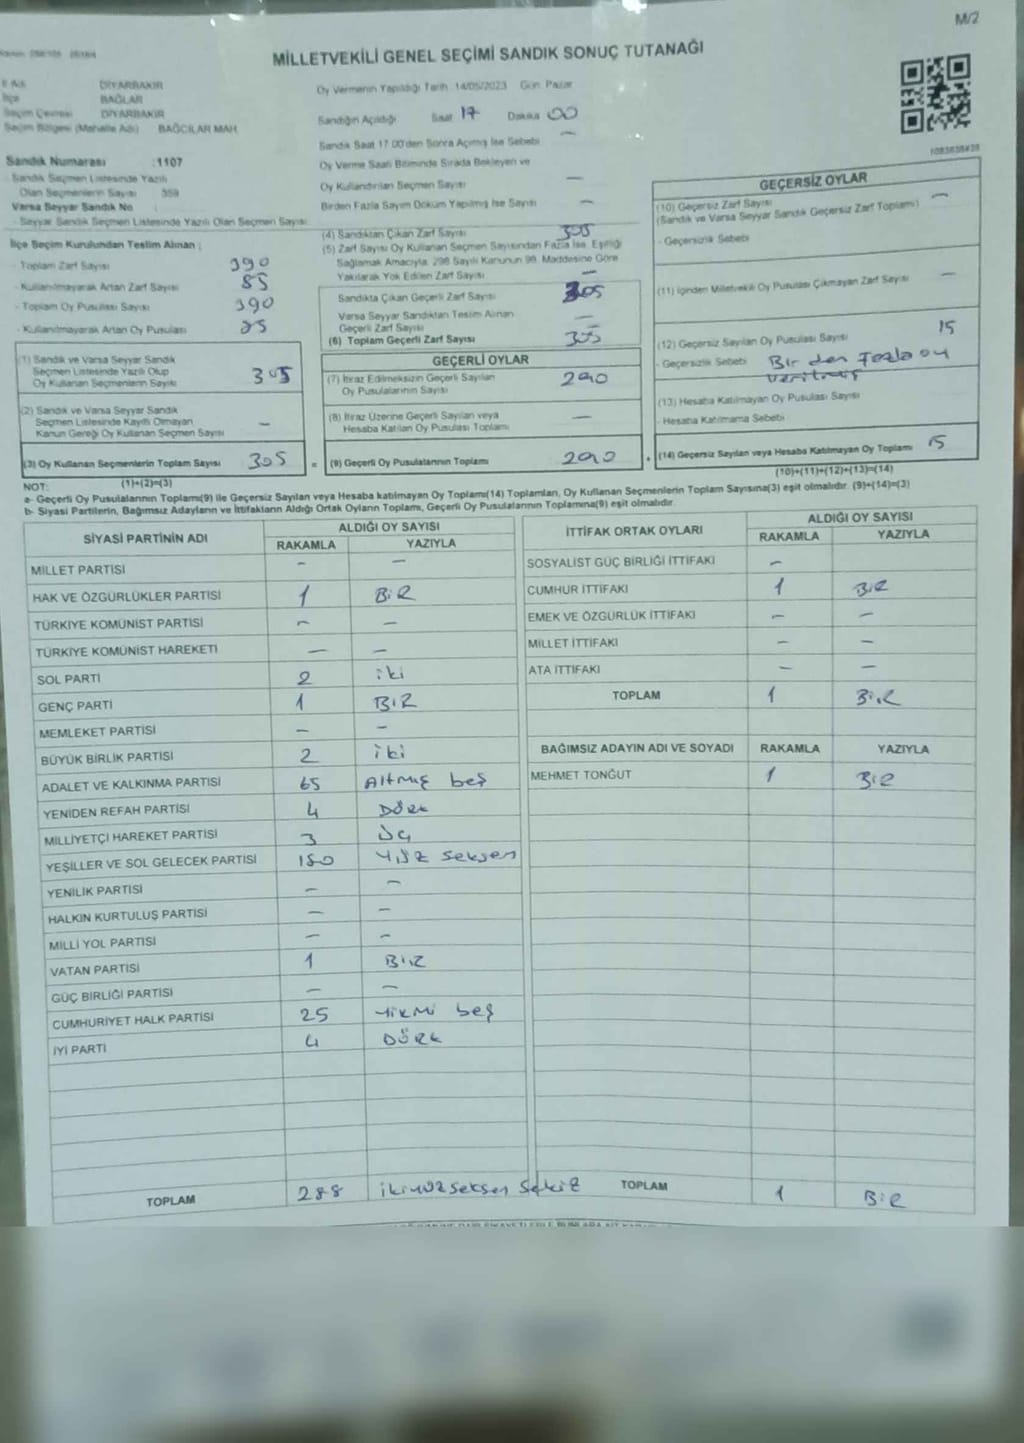 M/2
MİLLETVEKİLİ GENEL SEÇİMİ SANDIK SONUÇ TUTANAĞI
İl Adı DİYARBAKIR
İlçe BAĞLAR
Seçim Çevresi DİYARBAKIR
Seçim Bölgesi (Mahalle Adı) BAĞCILAR MAH.
Sandık Numarası :1107
- Sandık Seçmen Listesinde Yazılı
Olan Seçmenlerin Sayısı 359
Varsa Seyyar Sandık No :
- Seyyar Sandık Seçmen Listesinde Yazılı Olan Seçmen Sayısı
İlçe Seçim Kurulundan Teslim Alınan ;
- Toplam Zarf Sayısı 390
- Kullanılmayarak Artan Zarf Sayısı 85
- Toplam Oy Pusulası Sayısı 390
- Kullanılmayarak Artan Oy Pusulası 85
(1) Sandık ve Varsa Seyyar Sandık
Seçmen Listesinde Yazılı Olup
Oy Kullanan Seçmenlerin Sayısı 305
(2) Sandık ve Varsa Seyyar Sandık
Seçmen Listesinde Kayıtlı Olmayan
Kanun Gereği Oy Kullanan Seçmen Sayısı -
(3) Oy Kullanan Seçmenlerin Toplam Sayısı 305 =
(1)+(2)=(3)
Oy Vermenin Yapıldığı Tarih :14/05/2023 Gün: Pazar
Sandığın Açıldığı Saat 17 Dakika 00
Sandık Saat 17.00'den Sonra Açılmış İse Sebebi -
Oy Verme Saati Bitiminde Sırada Bekleyen ve
Oy Kullandırılan Seçmen Sayısı -
Birden Fazla Sayım Döküm Yapılmış İse Sayısı -
(4) Sandıktan Çıkan Zarf Sayısı 305
(5) Zarf Sayısı Oy Kullanan Seçmen Sayısından Fazla İse, Eşitliği
Sağlamak Amacıyla, 298 Sayılı Kanunun 98. Maddesine Göre
Yakılarak Yok Edilen Zarf Sayısı -
Sandıkta Çıkan Geçerli Zarf Sayısı 305
Varsa Seyyar Sandıktan Teslim Alınan
Geçerli Zarf Sayısı -
(6) Toplam Geçerli Zarf Sayısı 305
GEÇERLİ OYLAR
(7) İtiraz Edilmeksizin Geçerli Sayılan
Oy Pusulalarının Sayısı 290
(8) İtiraz Üzerine Geçerli Sayılan veya
Hesaba Katılan Oy Pusulası Toplamı -
(9) Geçerli Oy Pusulalarının Toplamı 290 +
GEÇERSİZ OYLAR
(10) Geçersiz Zarf Sayısı
(Sandık ve Varsa Seyyar Sandık Geçersiz Zarf Toplamı) -
- Geçersizlik Sebebi
(11) İçinden Milletvekili Oy Pusulası Çıkmayan Zarf Sayısı -
(12) Geçersiz Sayılan Oy Pusulası Sayısı 15
- Geçersizlik Sebebi Birden Fazla oy
verilmiş
(13) Hesaba Katılmayan Oy Pusulası Sayısı
- Hesaba Katılmama Sebebi
(14) Geçersiz Sayılan veya Hesaba Katılmayan Oy Toplamı 15
(10)+(11)+(12)+(13)=(14)
NOT:
a- Geçerli Oy Pusulalarının Toplamı(9) ile Geçersiz Sayılan veya Hesaba katılmayan Oy Toplamı(14) Toplamları, Oy Kullanan Seçmenlerin Toplam Sayısına(3) eşit olmalıdır. (9)+(14)=(3)
b- Siyasi Partilerin, Bağımsız Adayların ve İttifakların Aldığı Ortak Oyların Toplamı, Geçerli Oy Pusulalarının Toplamına(9) eşit olmalıdır.
SİYASİ PARTİNİN ADI ALDIĞI OY SAYISI
RAKAMLA YAZIYLA
MİLLET PARTİSİ - -
HAK VE ÖZGÜRLÜKLER PARTİSİ 1 BİR
TÜRKİYE KOMÜNİST PARTİSİ - -
TÜRKİYE KOMÜNİST HAREKETİ - -
SOL PARTİ 2 iki
GENÇ PARTİ 1 BİR
MEMLEKET PARTİSİ - -
BÜYÜK BİRLİK PARTİSİ 2 iki
ADALET VE KALKINMA PARTİSİ 65 Altmış beş
YENİDEN REFAH PARTİSİ 4 DÖRt
MİLLİYETÇİ HAREKET PARTİSİ 3 Üç
YEŞİLLER VE SOL GELECEK PARTİSİ 180 Yüz seksen
YENİLİK PARTİSİ - -
HALKIN KURTULUŞ PARTİSİ - -
MİLLİ YOL PARTİSİ - -
VATAN PARTİSİ 1 BİR
GÜÇ BİRLİĞİ PARTİSİ - -
CUMHURİYET HALK PARTİSİ 25 Yirmi beş
İYİ PARTİ 4 DÖRt
TOPLAM 288 ikiyüzseksen sekiz
İTTİFAK ORTAK OYLARI ALDIĞI OY SAYISI
RAKAMLA YAZIYLA
SOSYALİST GÜÇ BİRLİĞİ İTTİFAKI -
CUMHUR İTTİFAKI 1 BİR
EMEK VE ÖZGÜRLÜK İTTİFAKI - -
MİLLET İTTİFAKI - -
ATA İTTİFAKI - -
TOPLAM 1 BİR
BAĞIMSIZ ADAYIN ADI VE SOYADI RAKAMLA YAZIYLA
MEHMET TONĞUT 1 BİR
TOPLAM 1 BİR